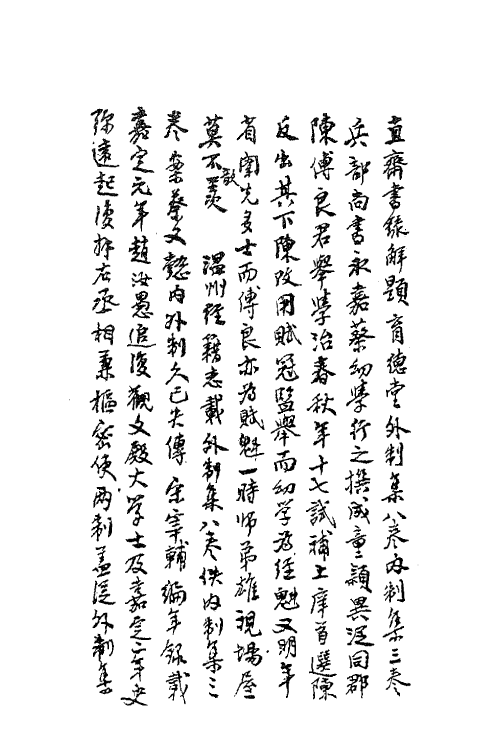 直齋書錄解題育德堂外制集八卷內制集三卷
兵部尚書永嘉蔡幼學行之撰成童穎異從同郡
陳傅良君舉學治春秋年十七試補上庠首選陳
反出其下陳改用賦冠監舉而幼学為經魁又明年
省闈先多士而傅良亦為賦魁一時師弟雄視場屋
莫不歆羨　溫州經籍志載外制集八卷佚內制集三
卷案蔡文懿內外制久已失傳宋宰輔編年錄載
嘉定元年趙汝愚追復觀文殿大学士及嘉定二年史
彌遠起復拜右丞相兼樞密使兩制蓋從外制集